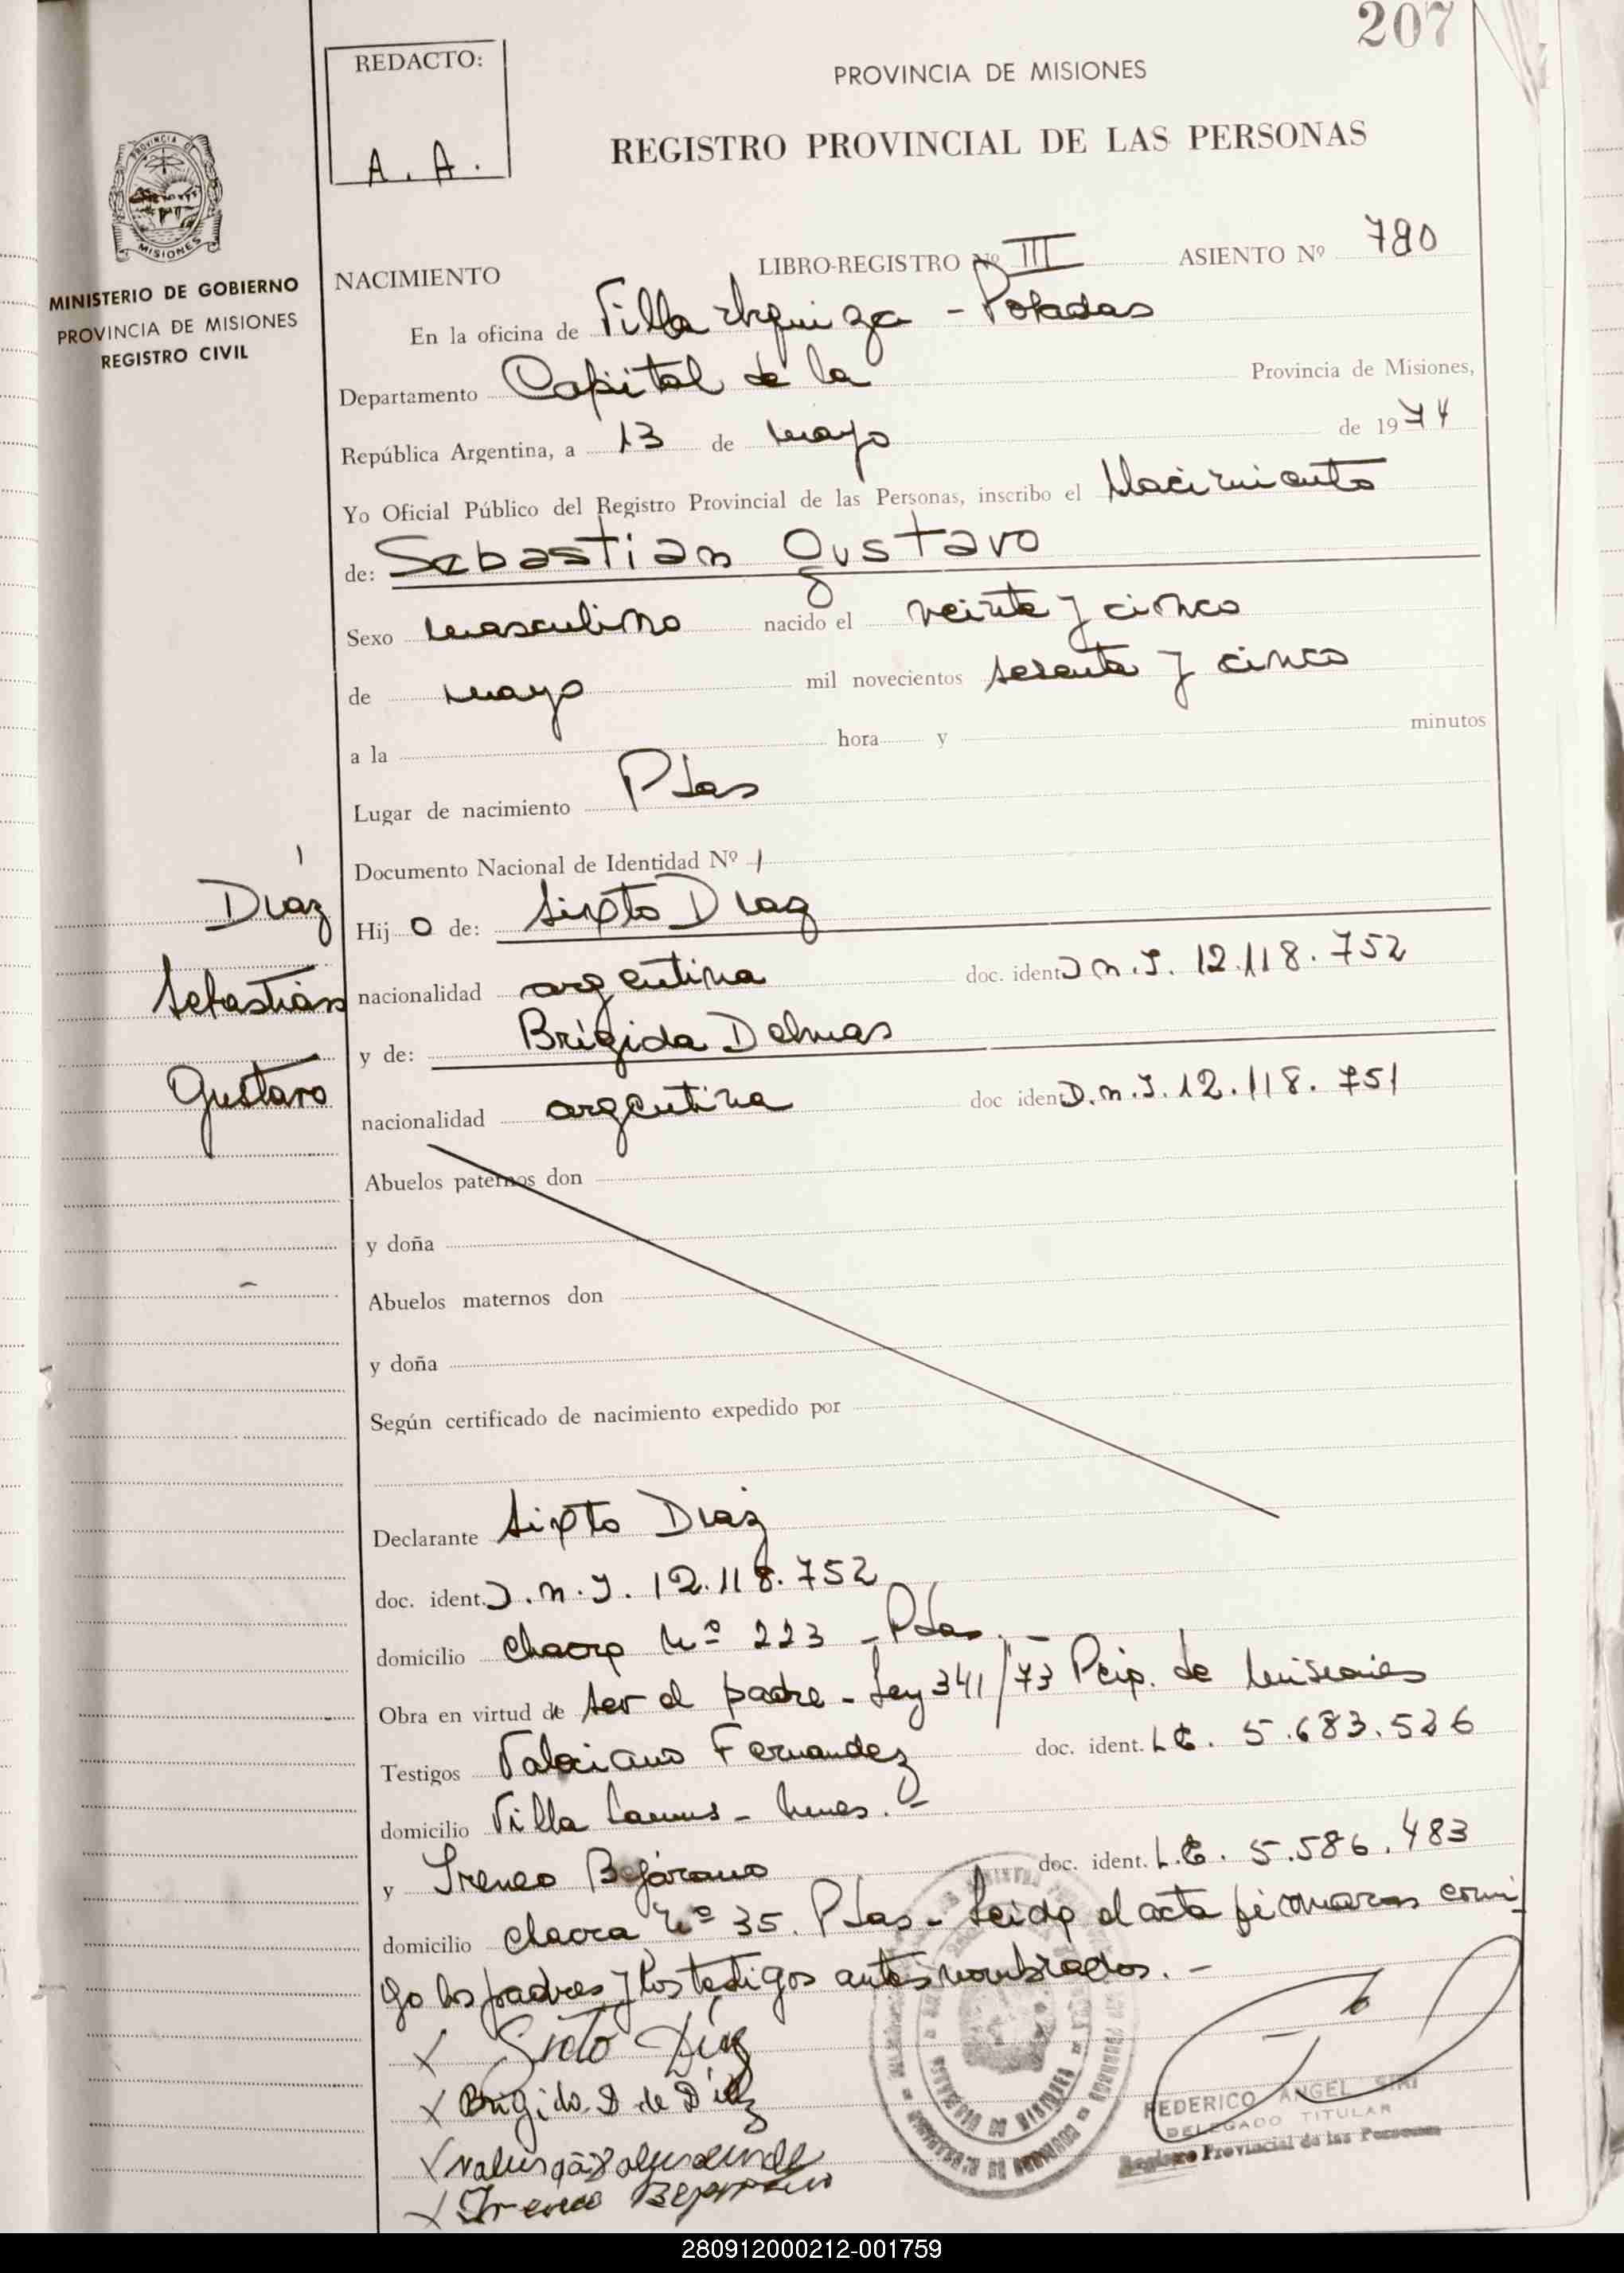 207
REDACTO:
A. A.
PROVINCIA DE MISIONES
REGISTRO PROVINCIAL DE LAS PERSONAS
PROVINCIA DE
MISIONES
MINISTERIO DE GOBIERNO
PROVINCIA DE MISIONES
REGISTRO CIVIL
NACIMIENTO LIBRO-REGISTRO Nº III ASIENTO Nº 780
En la oficina de Villa Urquiza - Posadas
Departamento Capital de la Provincia de Misiones,
República Argentina, a 13 de mayo de 1974
Yo Oficial Público del Registro Provincial de las Personas, inscribo el Nacimiento
de: Sebastian Gustavo
Sexo masculino nacido el veinte y cinco
de mayo mil novecientos sesenta y cinco
a la hora y minutos
Lugar de nacimiento Pdas
Documento Nacional de Identidad Nº /
Díaz
Sebastián
Gustavo
Hij o de: Sixto Diaz
nacionalidad argentina doc. ident. D.n.I. 12.118.752
y de: Brígida Delmas
nacionalidad argentina doc ident. D.n.I. 12.118.751
Abuelos paternos don
y doña
Abuelos maternos don
y doña
Según certificado de nacimiento expedido por
Declarante Sixto Diaz
doc. ident. D.n.I. 12.118.752
domicilio chacra Nº 223 - Pdas. -
Obra en virtud de ser el padre - Ley 341/73 Pcip. de Misiones
Testigos Fernandez doc. ident. L.E. 5.683.526
domicilio Villa Lanus - Mnes. -
y Ireneo Bejarano doc. ident. L.E. 5.586.483
domicilio chacra Nº 35. Pdas - Leida el acta firmaron conmi-
go los padres y los testigos antes nombrados. -
x Sixto Díaz
x Brigida D de Díaz
x Ireneo Bejarano
FEDERICO ANGEL SIRI
DELEGADO TITULAR
Registro Provincial de las Personas
280912000212-001759